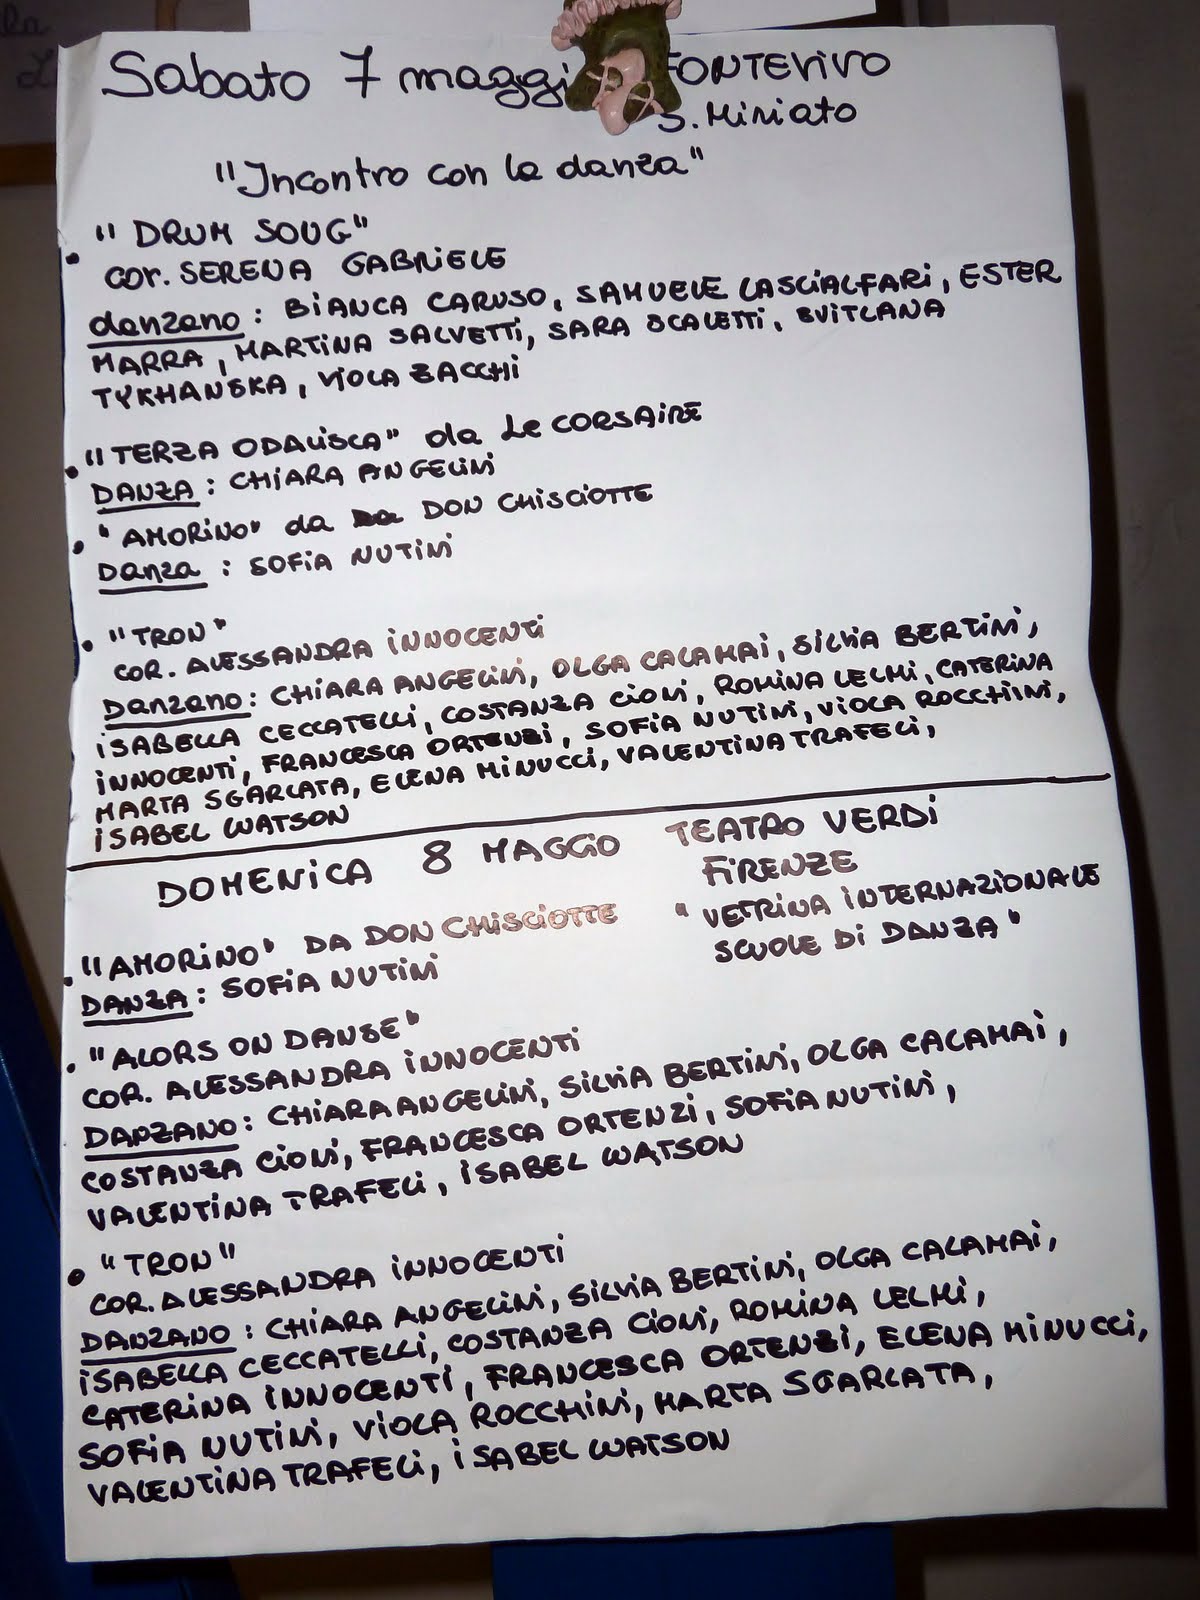 Sabato 7 maggi FONTEVIVO
S. Miniato
"Incontro con la danza"
• "DRUM SOUG"
cor. SERENA GABRIELE
danzano: BIANCA CARUSO, SAMUELE LASCIALFARI, ESTER
MARRA, MARTINA SALVETTI, SARA SCALETTI, SVITLANA
TYKHANSKA, VIOLA ZACCHI
• "TERZA ODALISCA" da Le CORSAIRE
DANZA: CHIARA ANGELINI
• "AMORINO" da DON CHISCIOTTE
Danza: SOFIA NUTINI
• "TRON"
COR. ALESSANDRA INNOCENTI
Danzano: CHIARA ANGELINI, OLGA CALAMAI, SILVIA BERTINI,
ISABELLA CECCATELLI, COSTANZA CIONI, ROMINA LELMI, CATERINA
INNOCENTI, FRANCESCA ORTENZI, SOFIA NUTINI, VIOLA ROCCHINI,
MARTA SGARLATA, ELENA MINUCCI, VALENTINA TRAFELI,
ISABEL WATSON
DOMENICA 8 MAGGIO TEATRO VERDI
FIRENZE
"VETRINA INTERNAZIONALE
SCUOLE DI DANZA"
• "AMORINO" DA DON CHISCIOTTE
DANZA: SOFIA NUTINI
• "ALORS ON DANSE"
COR. ALESSANDRA INNOCENTI
DANZANO: CHIARA ANGELINI, SILVIA BERTINI, OLGA CALAMAI,
COSTANZA CIONI, FRANCESCA ORTENZI, SOFIA NUTINI,
VALENTINA TRAFELI, ISABEL WATSON
• "TRON"
COR. ALESSANDRA INNOCENTI
DANZANO: CHIARA ANGELINI, SILVIA BERTINI, OLGA CALAMAI,
ISABELLA CECCATELLI, COSTANZA CIONI, ROMINA LELMI,
CATERINA INNOCENTI, FRANCESCA ORTENZI, ELENA MINUCCI,
SOFIA NUTINI, VIOLA ROCCHINI, MARTA SGARLATA,
VALENTINA TRAFELI, ISABEL WATSON